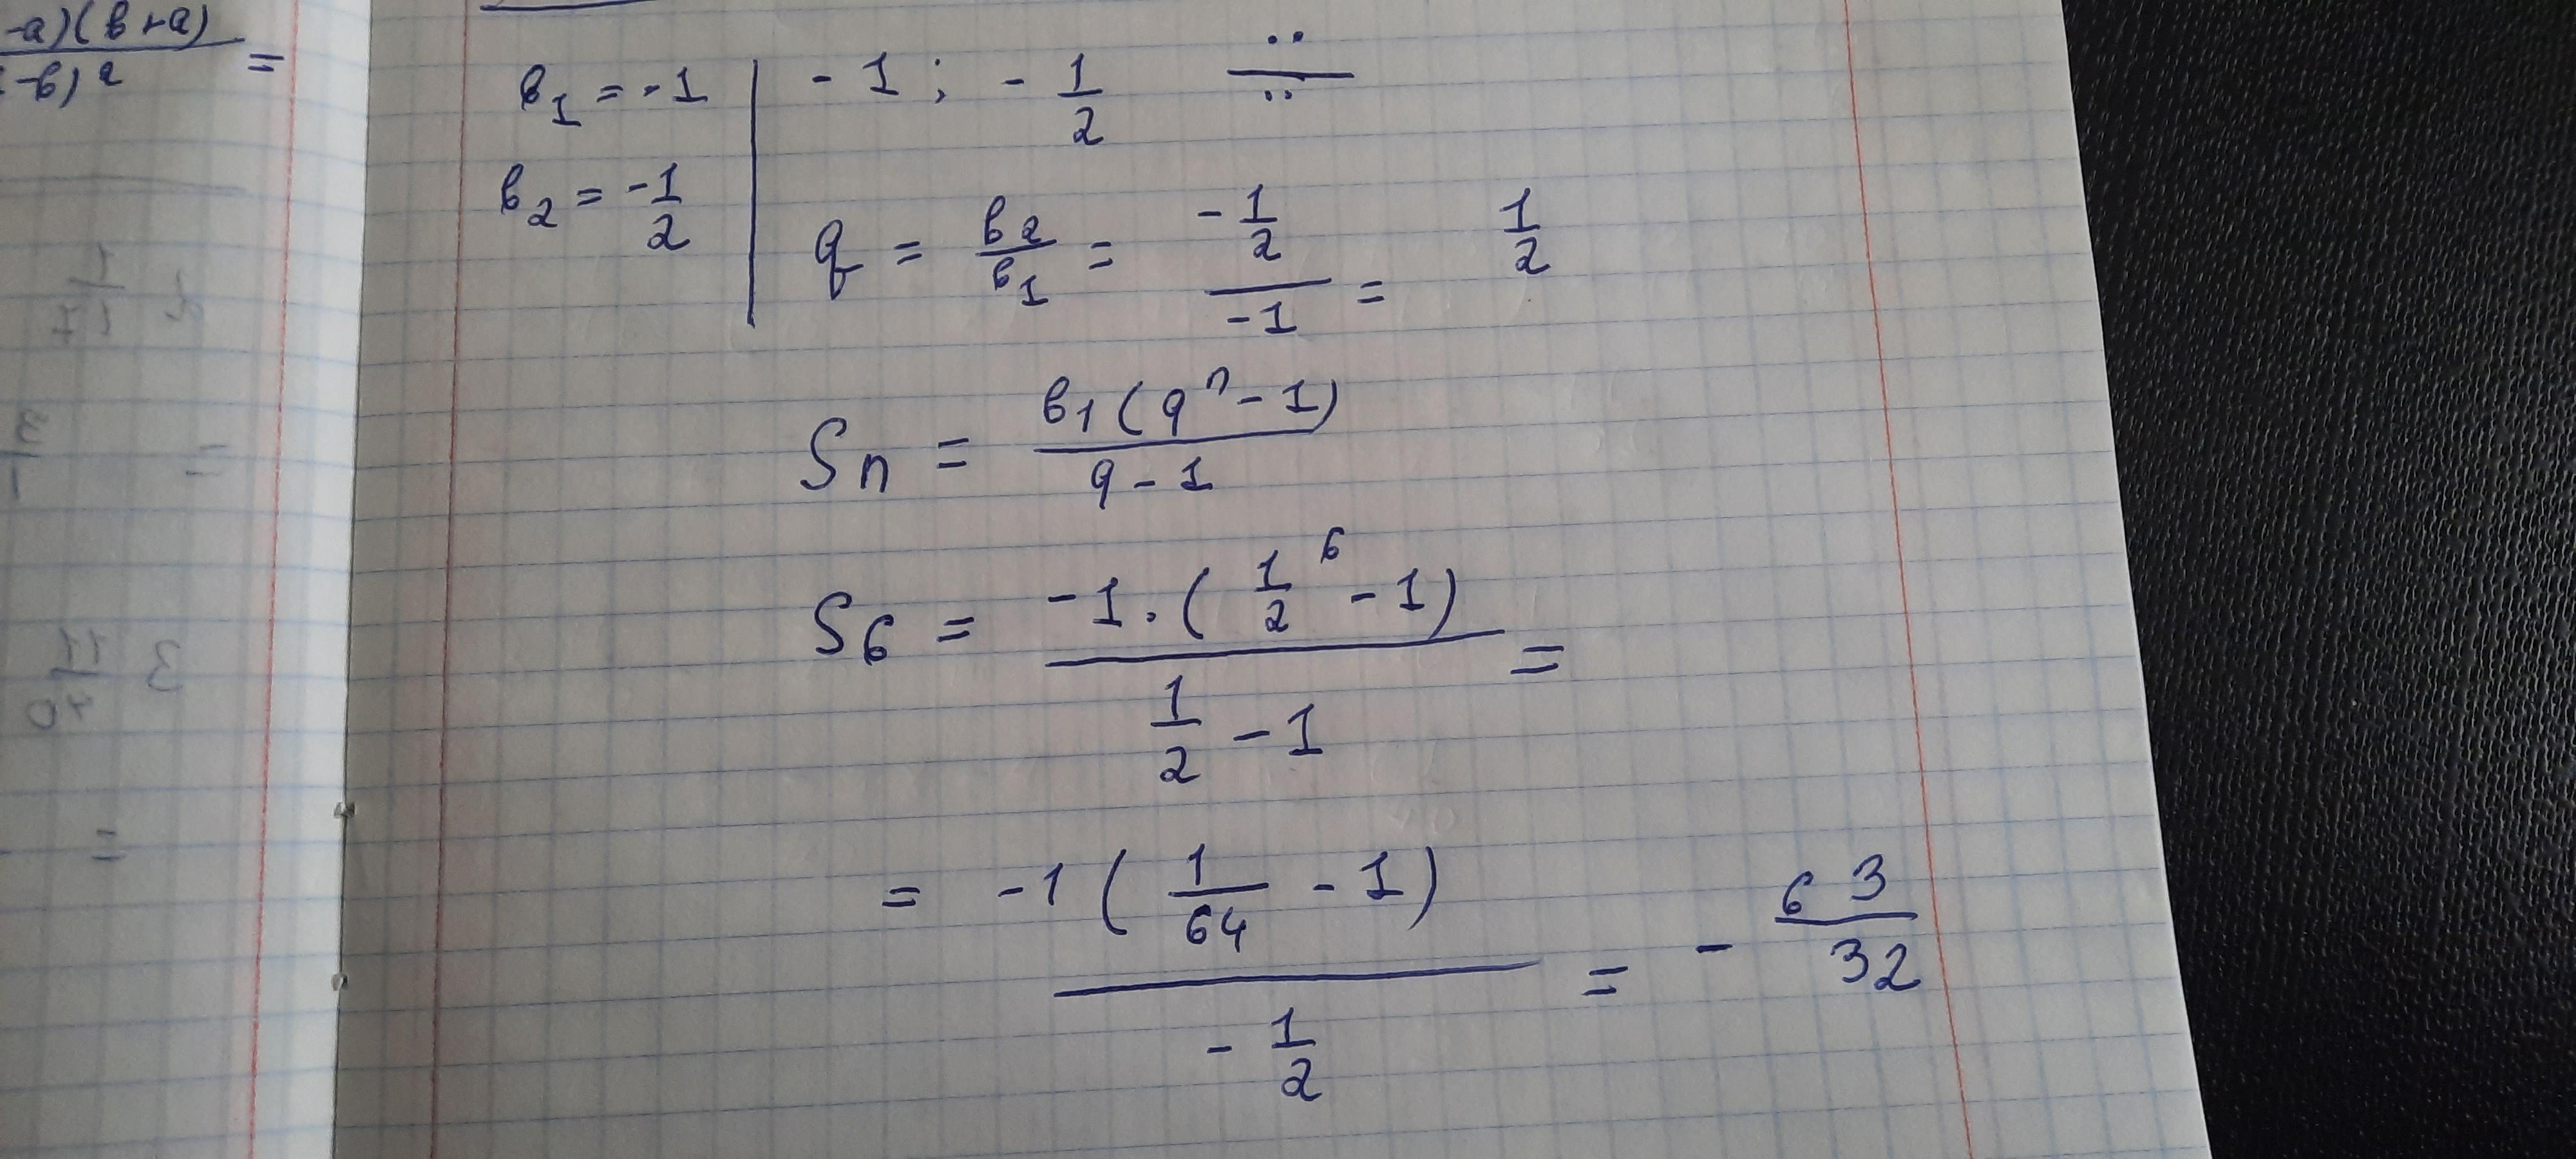 -a)(b+a)
-b)² =
b₁ = -1 | -1 ; -1/2 ÷÷
b₂ = -1/2 | q = b₂/b₁ = (-1/2)/(-1) = 1/2
Sn = b₁(qⁿ-1)/(q-1)
S₆ = -1·(1/2⁶ -1)/(1/2 -1) =
= -1(1/64 -1)/(-1/2) = -63/32